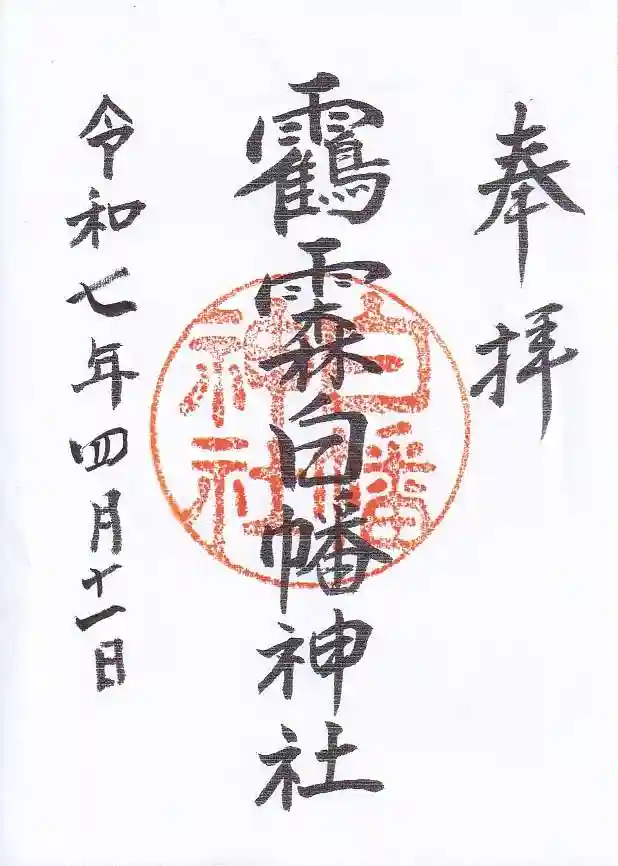 奉拝
靍白幡神社
令和七年四月十一日
白幡
神社